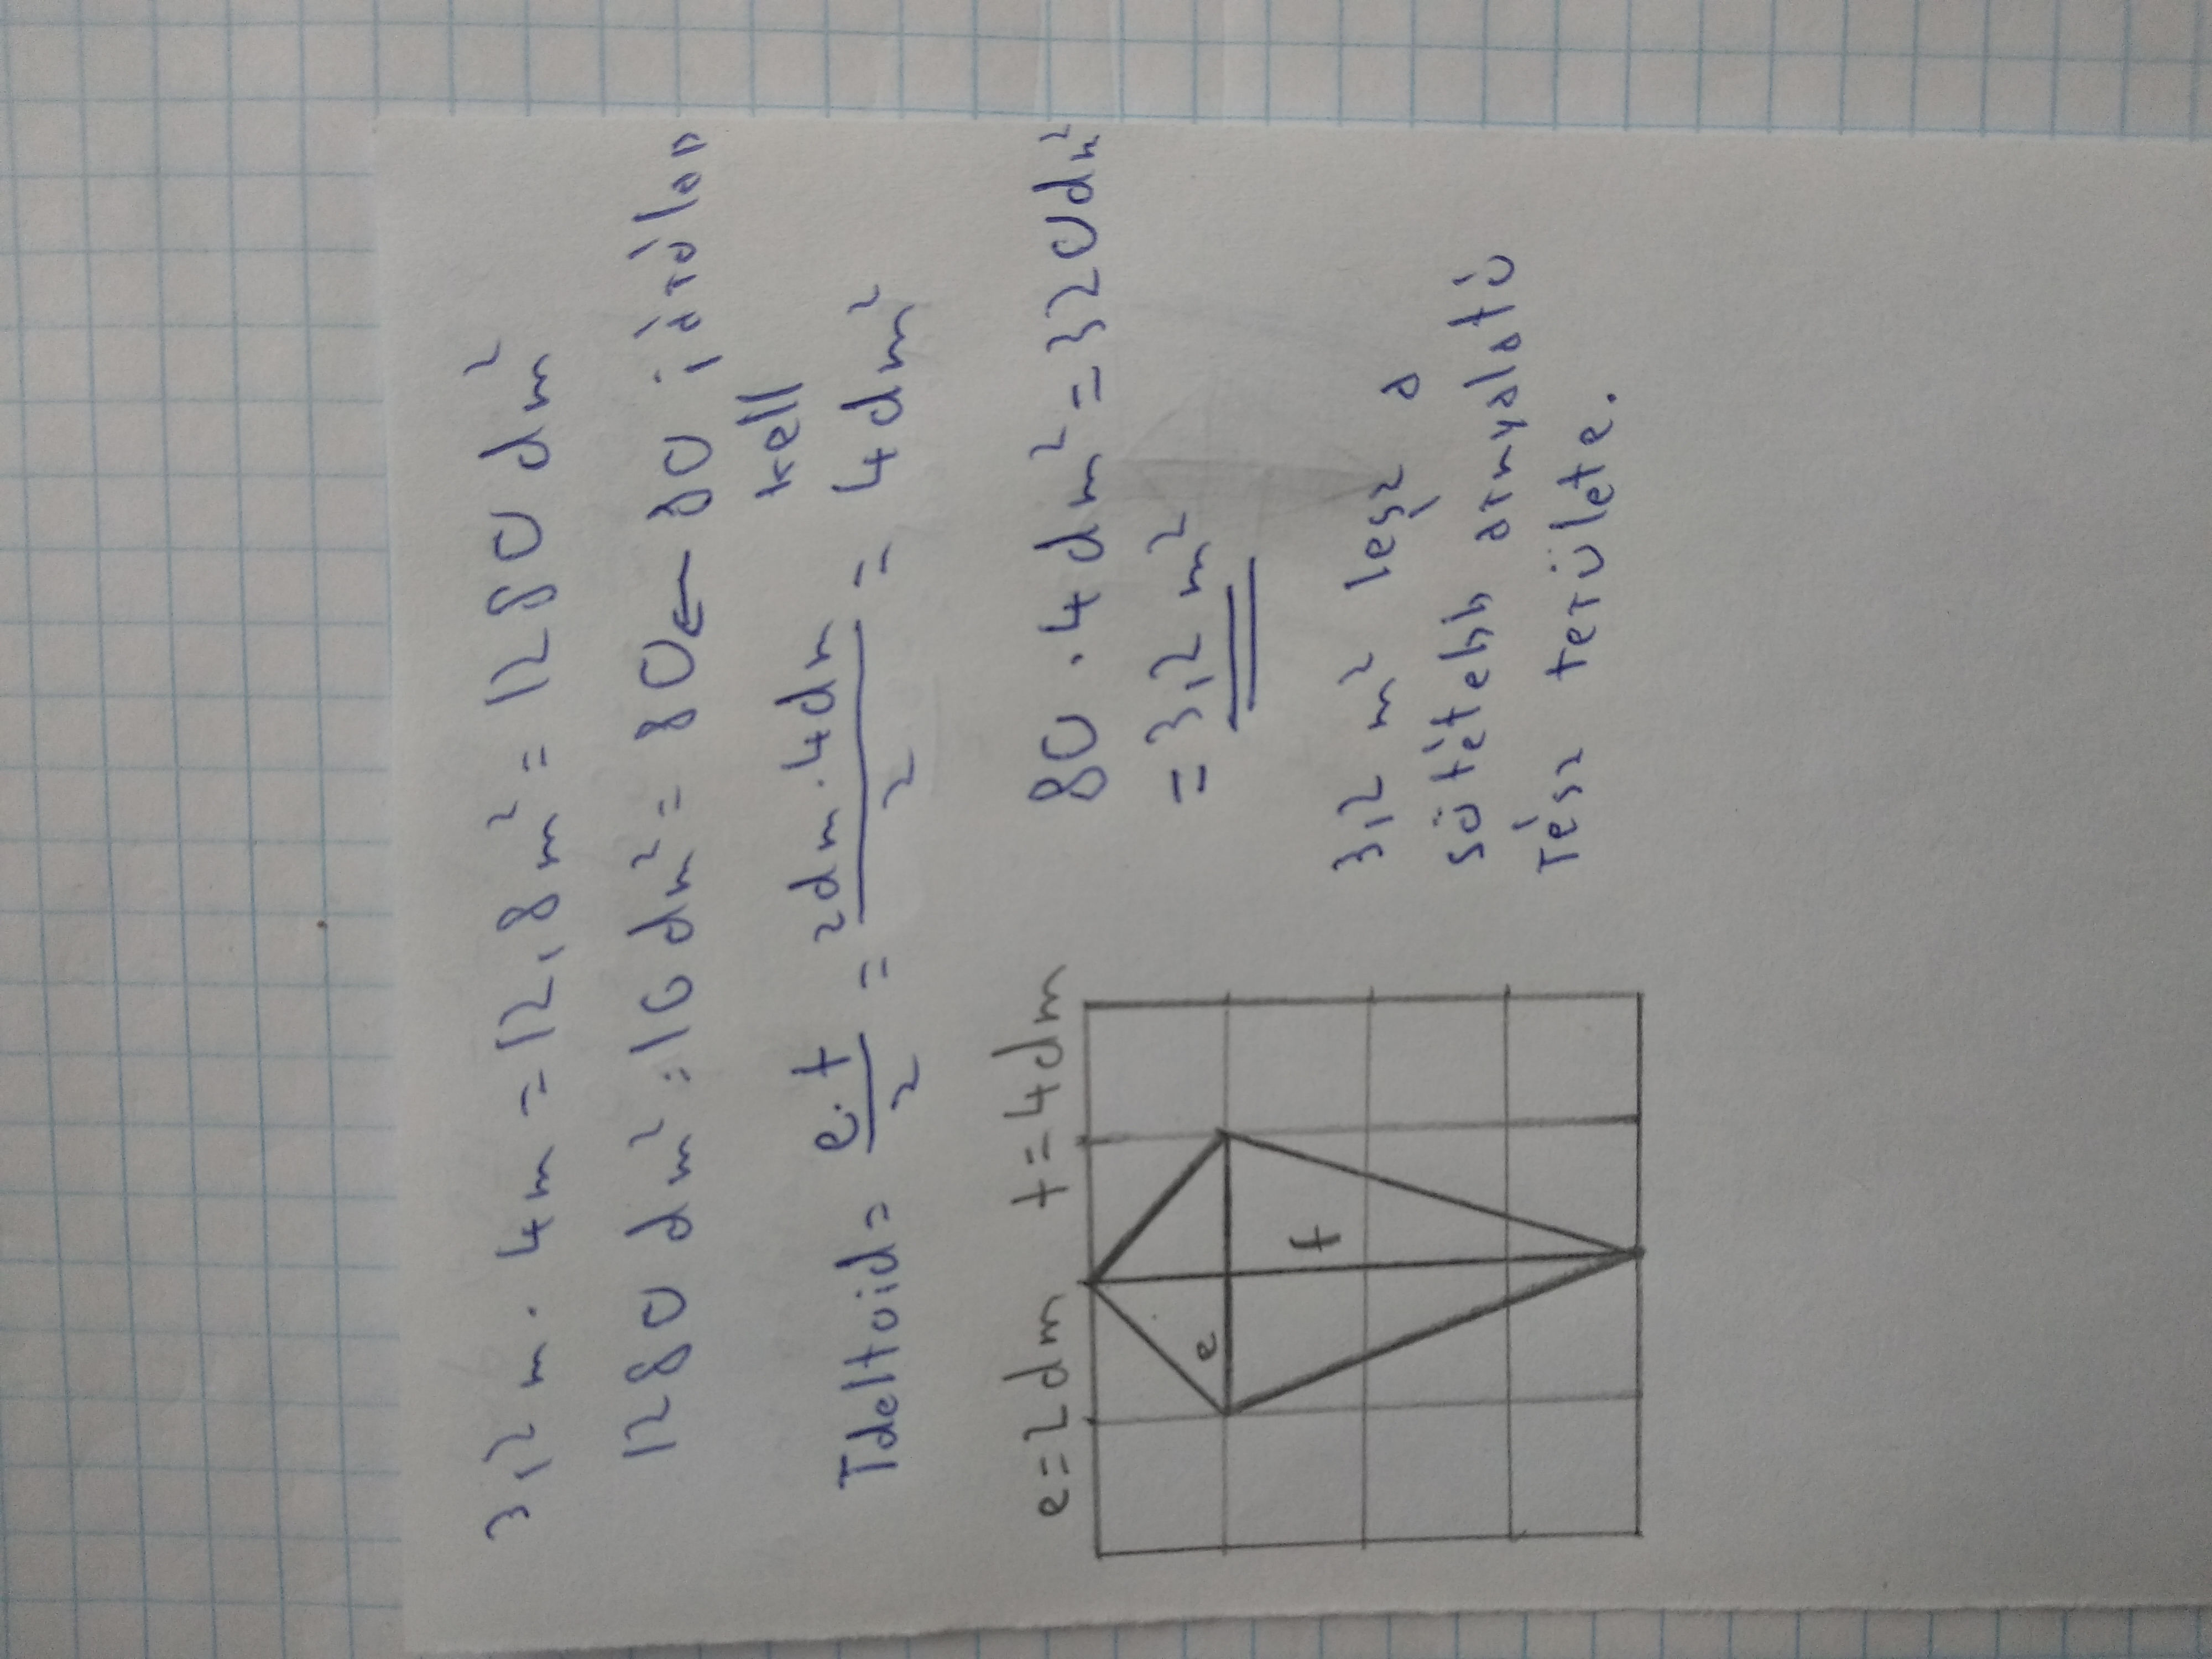 3,2 m · 4m = 12,8 m² = 1280 dm²
1280 dm² : 16 dm² = 80 ← 80 járólap
kell
Tdeltoid = e·f/2 = 2dm·4dm/2 = 4dm²
e=2dm f=4dm
80 · 4dm² = 320dm²
= 3,2 m²
e
f
3,2 m² lesz a
sötétebb árnyalatú
rész területe.